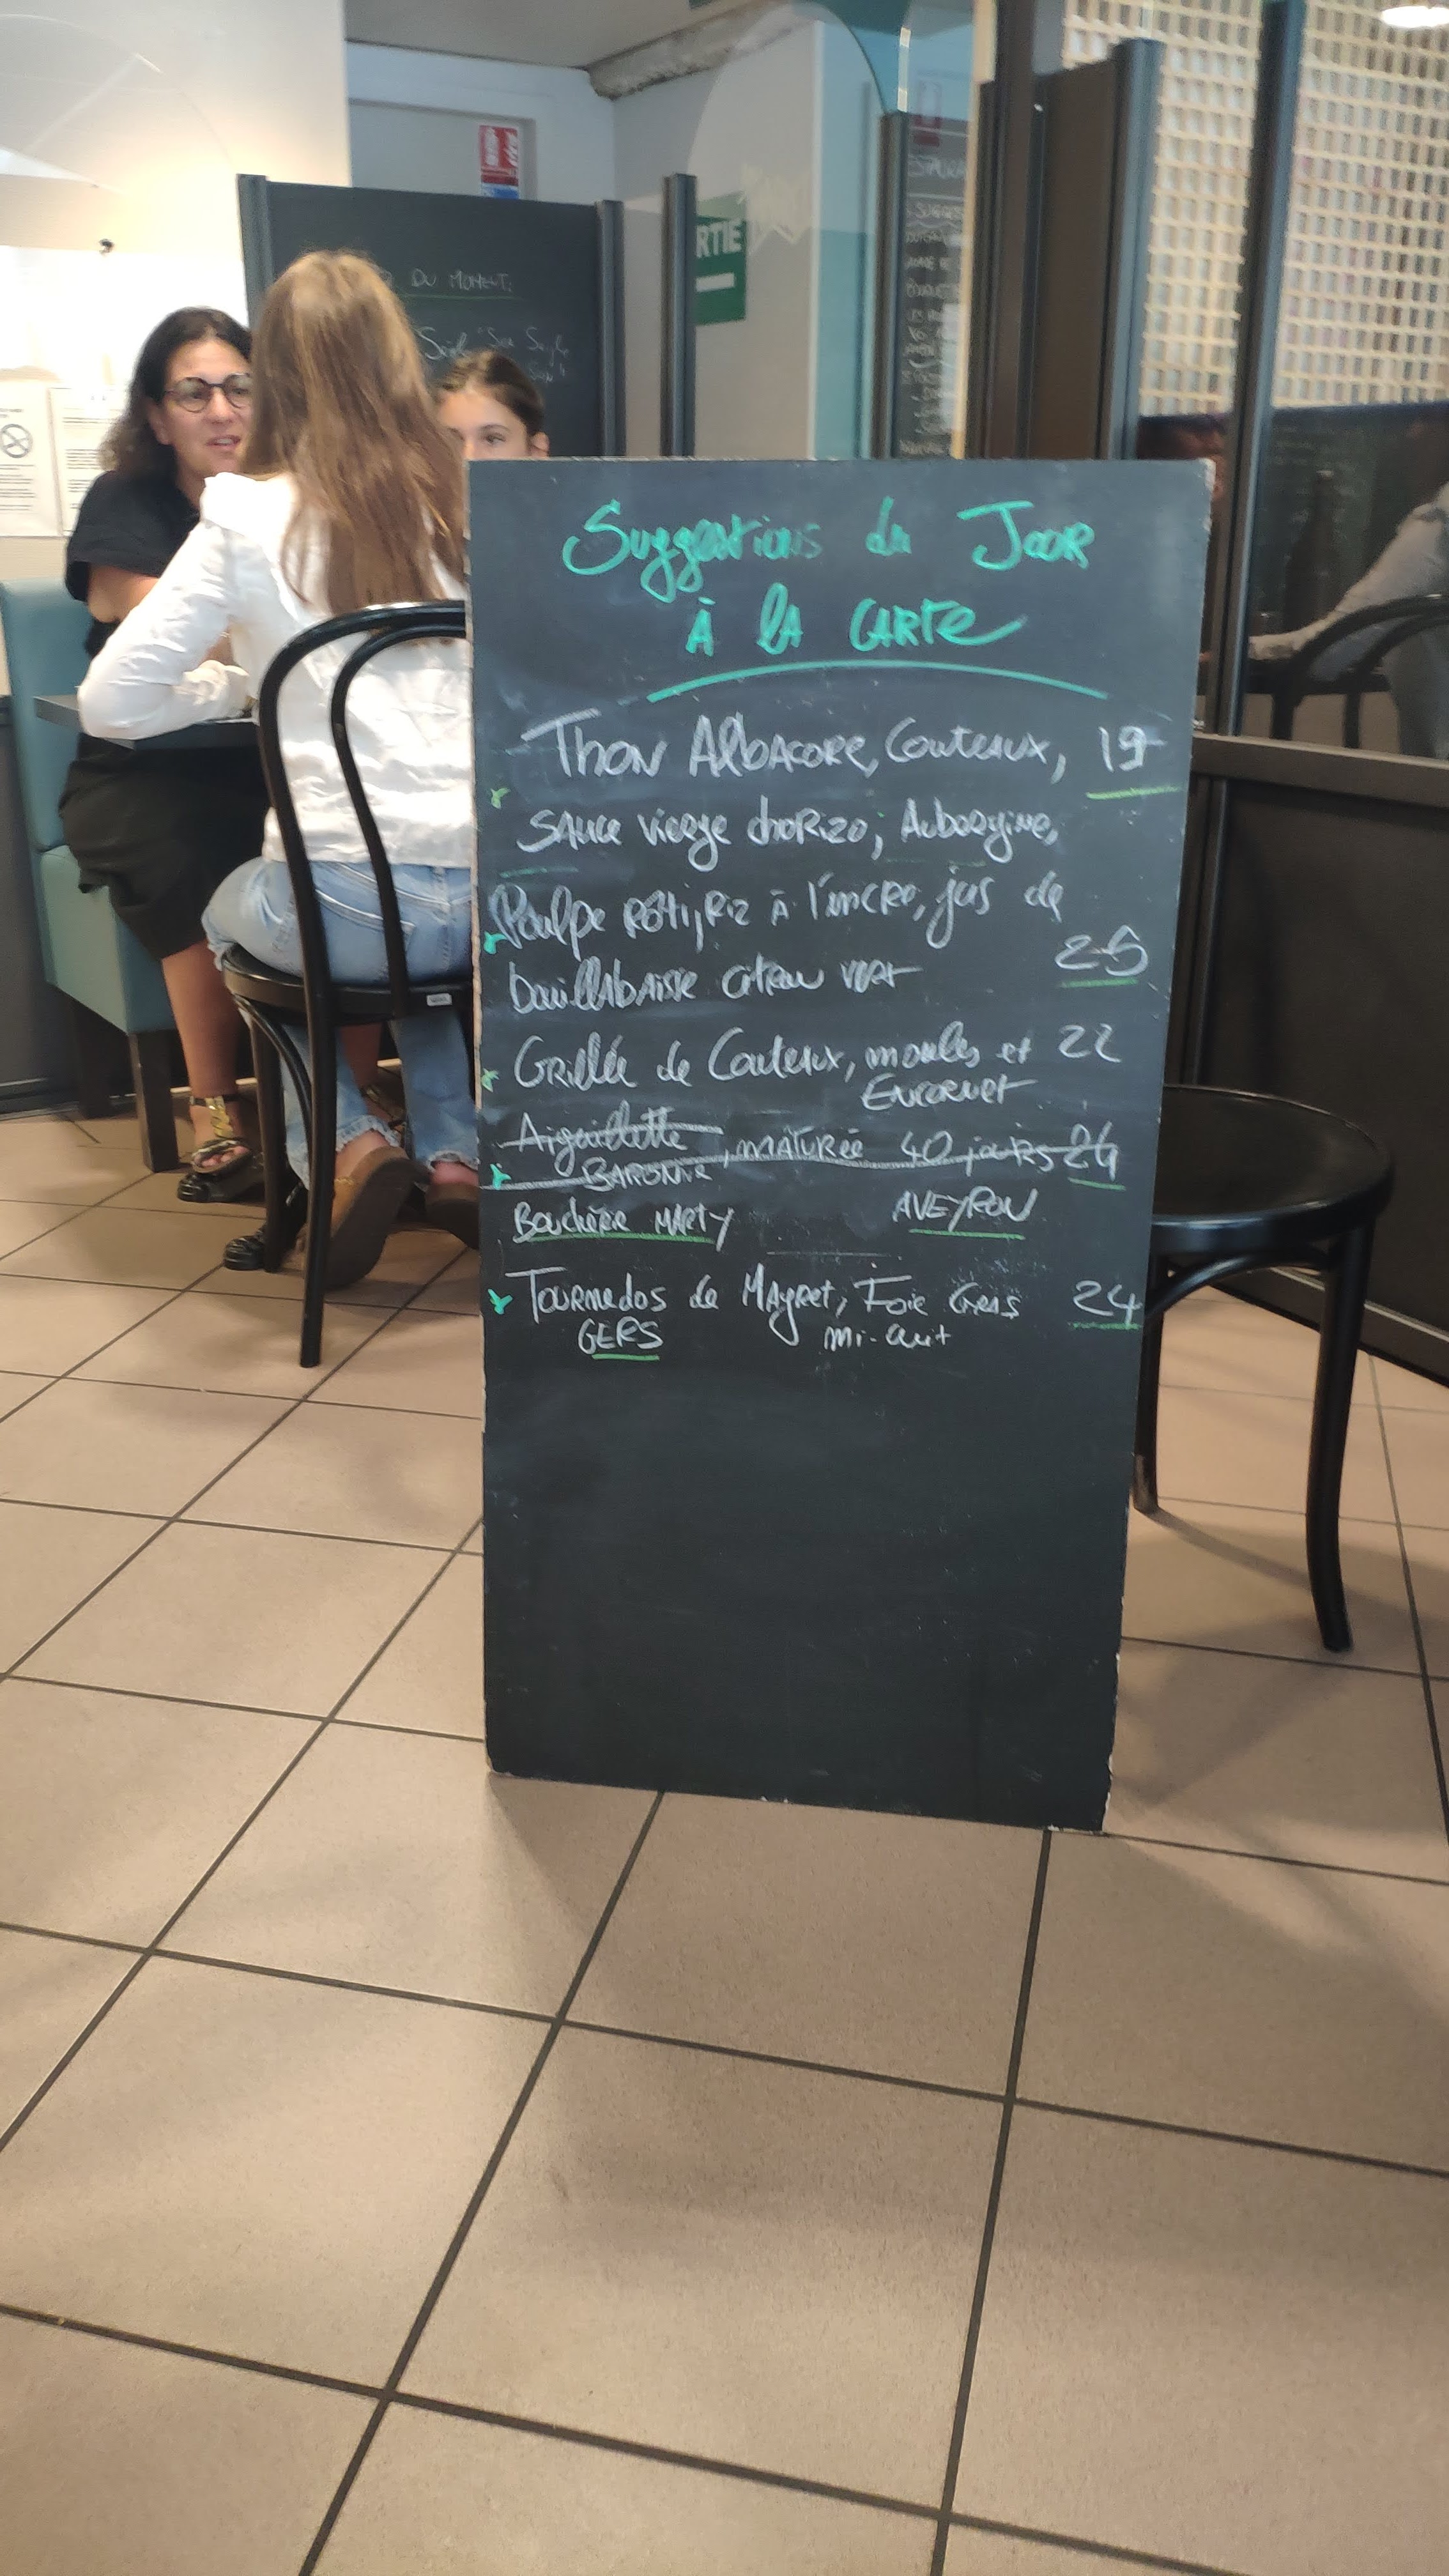 DU MOMENT:
RTIE
Suggestions du Jour
À la CARTE
Thon Albacore, Couteaux, 19
sauce vierge chorizo, Aubergine,
Poulpe rôti, riz à l'encre, jus de
bouillabaisse citron vert 25
Grillée de Couteaux, moules et 22
Encornet
Aiguillette, maturée 40 jours 24
BARONNE
Bouchère MARTY AVEYRON
Tournedos de Magret, Foie Gras 24
GERS mi-cuit